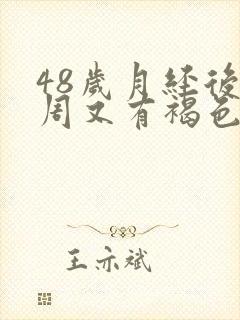 48歲月經後
周又有褐色
王亦斌